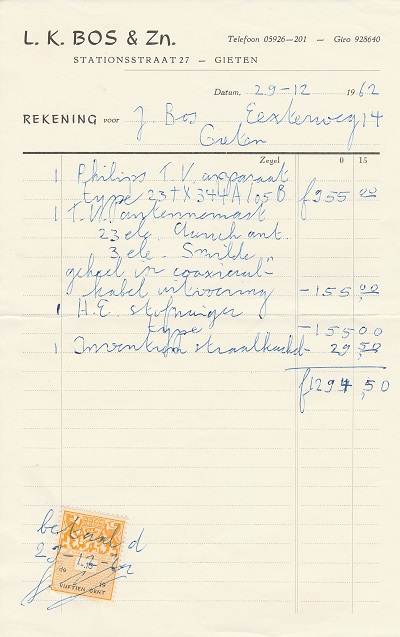 L. K. BOS & Zn.
Telefoon 05926—201 — Giro 928640
STATIONSSTRAAT 27 — GIETEN
Datum, 29-12 1962
REKENING voor J. Bos Eexterweg 14
Gieten
Zegel 0 15
1 Philips T.V. apparaat
type 23TX344A/05B f 955 00
1 T.V. antennemast
23 ele. ant.
3 ele. Smilde
geheel in coaxiaal-
kabel uitvoering - 155 00
1 H.E. stofzuiger
type - 155 00
1 Inventum straalkachel - 29 50
f 1294,50
betaald
29-12-62
15
de 19
VIJFTIEN CENT